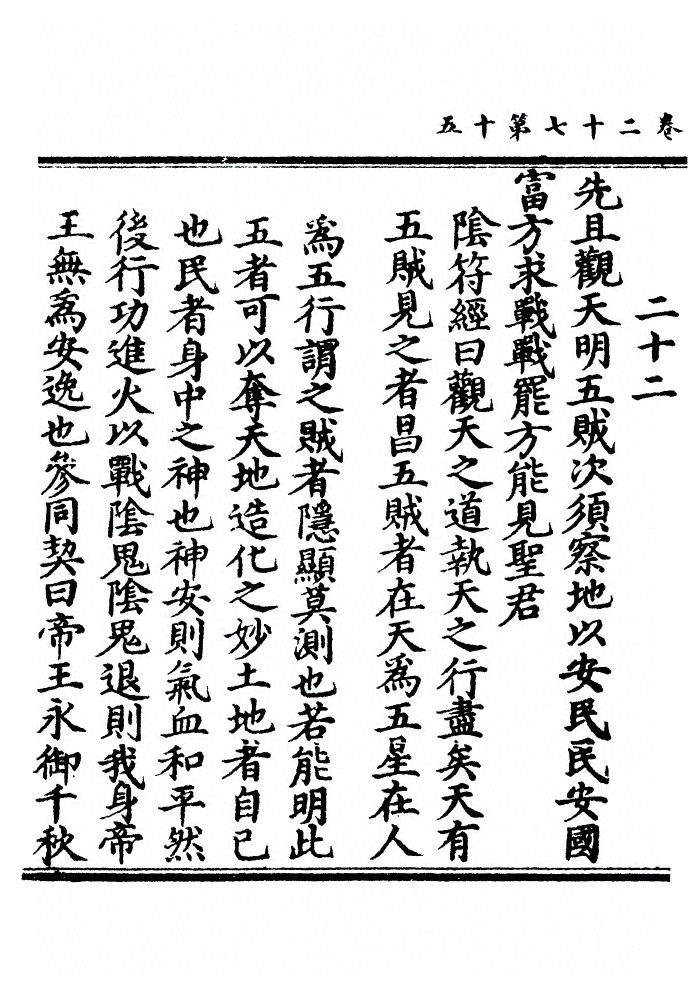 卷二十七第十五
二十二
先且觀天明五賊次須察地以安民民安國
富方求戰戰罷方能見聖君
陰符經曰觀天之道執天之行盡矣天有
五賊見之者昌五賊者在天爲五星在人
爲五行謂之賊者隱顯莫測也若能明此
五者可以奪天地造化之妙土地者自己
也民者身中之神也神安則氣血和平然
後行功進火以戰陰鬼陰鬼退則我身帝
王無爲安逸也參同契曰帝王永御千秋